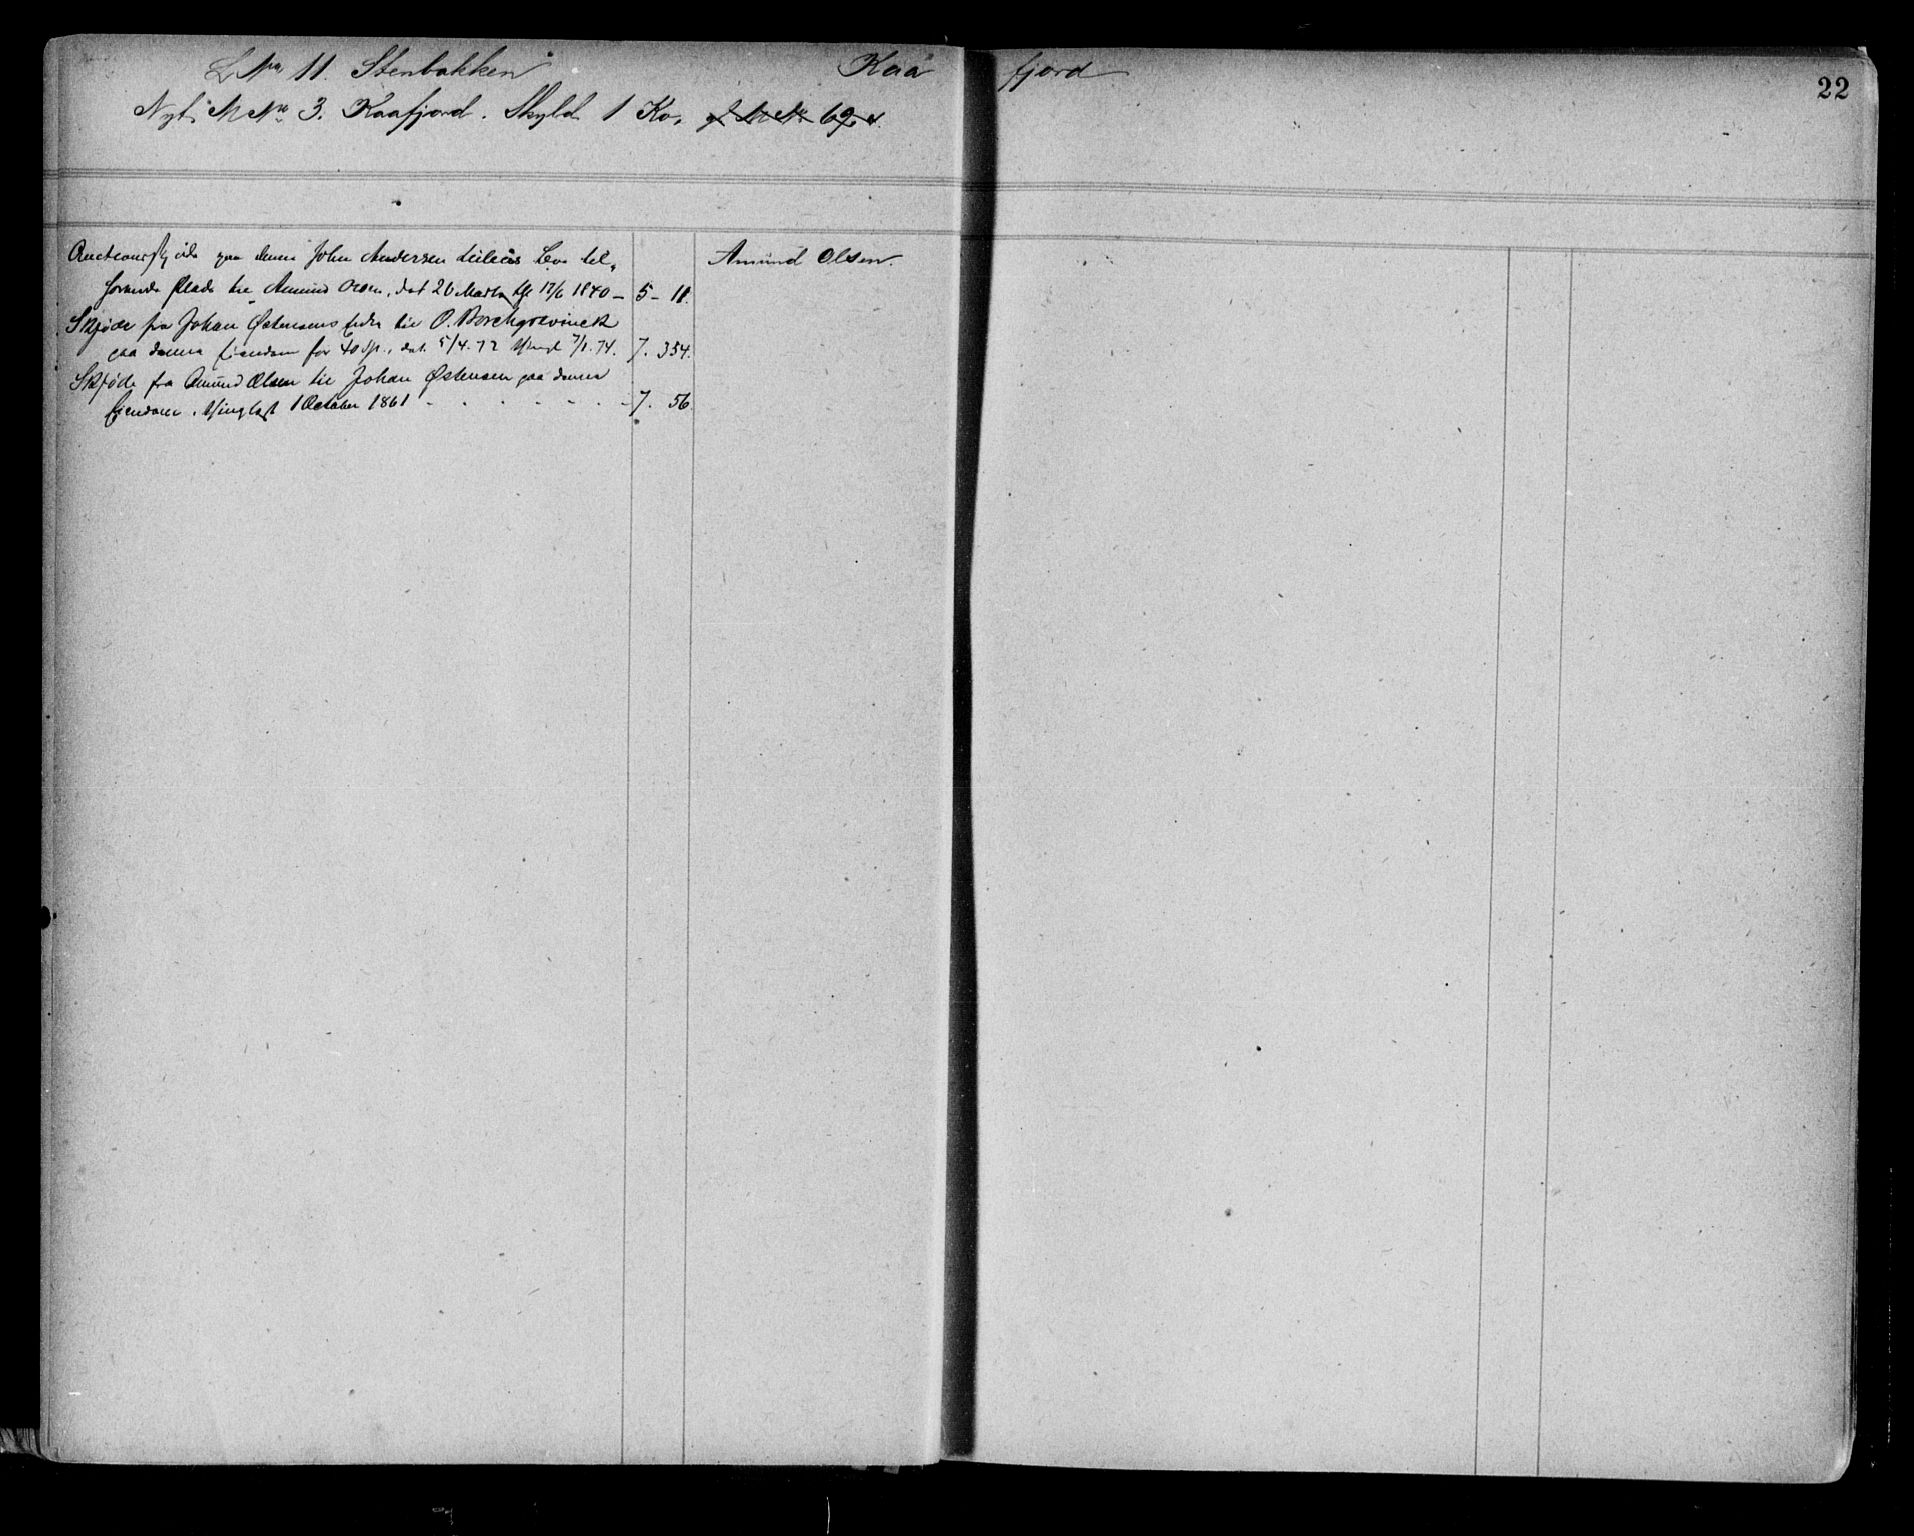 L No 11. Stenbakken Kaa fjord
22
Nyt M No 3. Kaafjord. Skyld 1 Ko,
Auctionsskjøde paa denne John Andersen Leiliès Bo til,
hørende Plads til Amund Olsen, dat 26 Marts tgl 17/6 1840 – 5 – 11.
Amund Olsen.
Skjøde fra Johan Østensens til O. Borchgrevinck
paa denne Eiendom for 40 Sp., dat. 5/4.72 thingl 7/1.74. 7. 354.
Skjøde fra Amund Olsen til Johan Østensen paa denne
Eiendom. thinglæst 1 October 1861 - - - - - - - 7. 56.